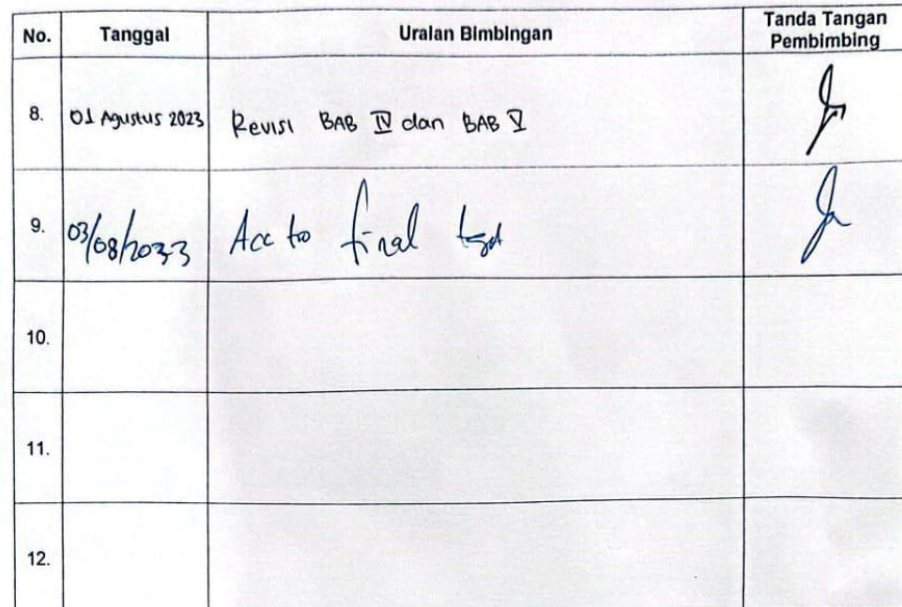 No. Tanggal Uraian Bimbingan Tanda Tangan Pembimbing
8. 01 Agustus 2023 Revisi BAB IV dan BAB V
9. 03/08/2023 Acc to final
10.
11.
12.